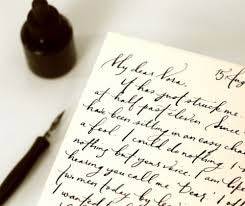 15 Aug
My dear Nora,
It has just struck me
at half past eleven. Since
have been sitting in an easy chair
a fool. I could do nothing. I
nothing but your voice. I am like
hearing you call me 'Dear.' I
two men today by
I wanted